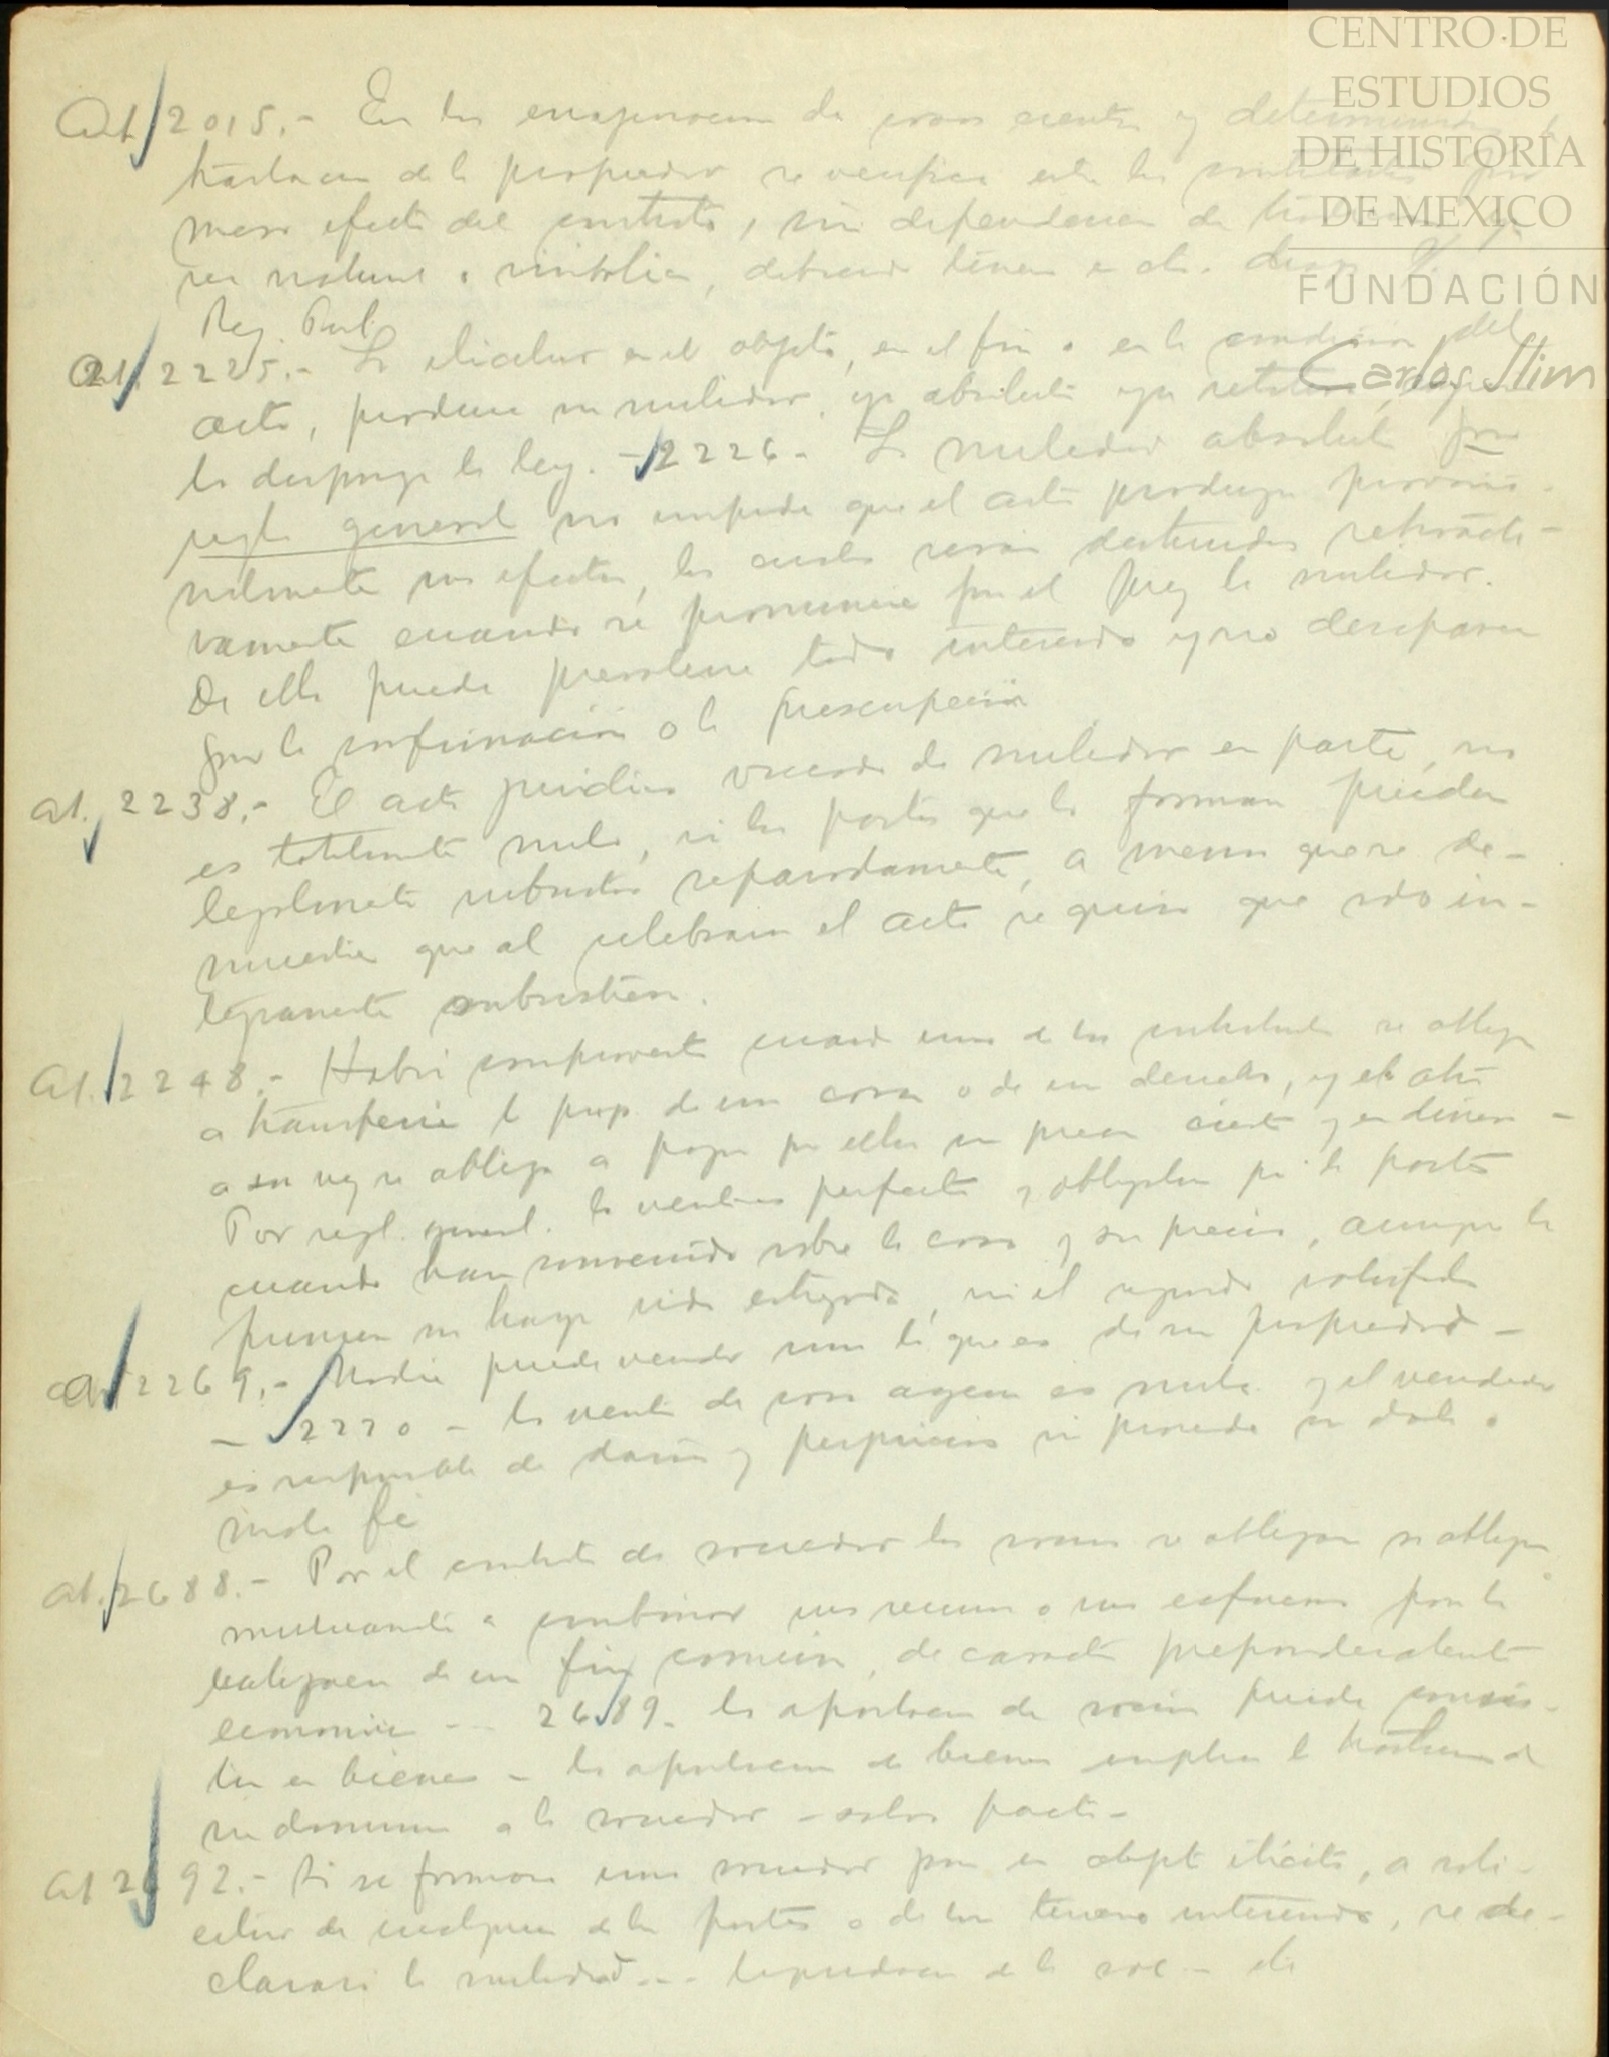 CENTRO DE
ESTUDIOS
DE HISTORIA
DE MEXICO
FUNDACIÓN
Carlos Slim
Art. 2015.- En las enajenaciones de cosas ciertas y determinadas, la
traslacion de la propiedad se verifica entre los contratantes por
mero efecto del contrato, sin dependencia de tradicion ya
sea natural o simbolica, debiendo tenerse en cta.
Reg. Publ.
Art. 2225.- La ilicitud en el objeto, en el fin o en la condición del
acto, produce su nulidad, ya absoluta ya relativa, segun
lo disponga la ley. - 2226 - La nulidad absoluta por
regla general no impide que el acto produzca provisio-
nalmente sus efectos, los cuales serán destruidos retroacti-
vamente cuando se pronuncie por el juez la nulidad.
De ella puede prevalerse todo interesado y no desaparece
por la confirmación o la prescripción
Art. 2238.- El acto juridico viciado de nulidad en parte, no
es totalmente nulo, si las partes que lo forman pueden
legalmente subsistir separadamente, a menos que se de-
muestre que al celebrarse el acto se quiso que solo in-
tegramente subsistiera.
Art. 2248.- Habrá compraventa cuando uno de los contratantes se obliga
a transferir la prop. de una cosa o de un derecho, y el otro
a su vez se obliga a pagar por ellos un precio cierto y en dinero -
Por regla general. la venta es perfecta y obligatoria para las partes
cuando han convenido sobre la cosa y su precio, aunque la
primera no haya sido entregada, ni el segundo satisfecho
Art 2269.- Nadie puede vender sino lo que es de su propiedad -
- 2270 - la venta de cosa ajena es nula y el vendedor
es responsable de daños y perjuicios si procede con dolo o
mala fe
Art. 2688.- Por el contrato de sociedad los socios se obligan se obligan
mutuamente a combinar sus recursos o sus esfuerzos para la
realizacion de un fin común, de caracter preponderantemente
economico - - - 2689 - la aportacion de socios puede consis-
tir en bienes - la aportacion de bienes implica la traslacion de
su dominio a la sociedad - salvo pacto -
Art 2692.- Si se formare una sociedad para un objeto ilícito, a soli-
citud de cualquiera de los partes o de un tercero interesado, se de-
clarará la nulidad - - - liquidacion de la soc - etc